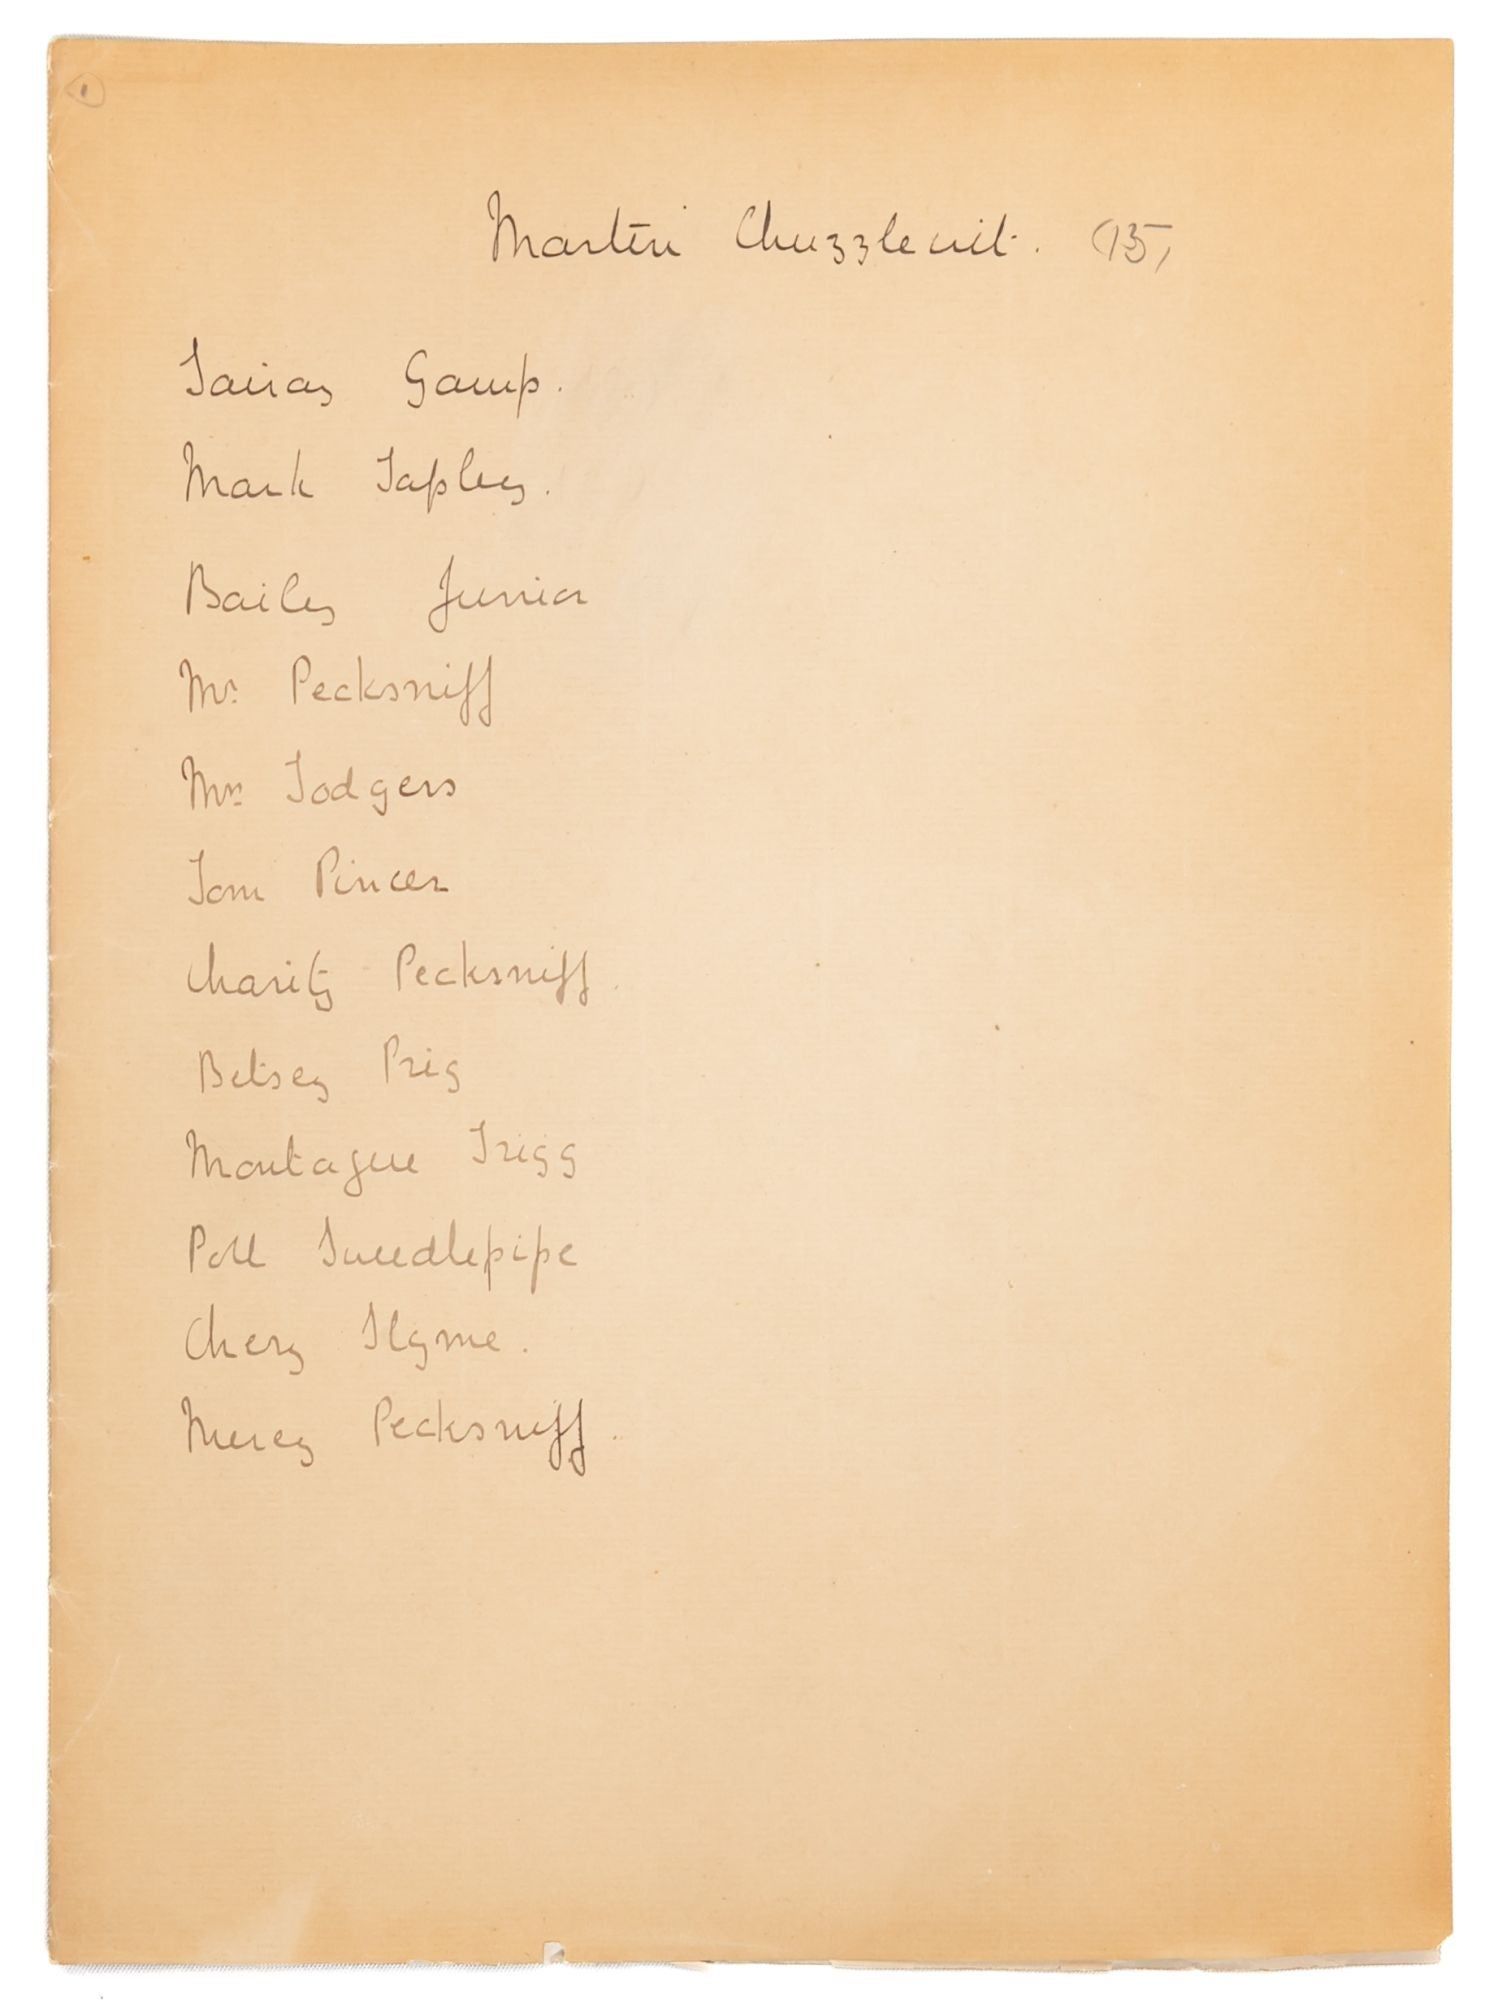 1
Martin Chuzzlewit. (15)
Sairay Gamp.
Mark Tapley.
Bailey Junior
Mr. Pecksniff
Mrs Todgers
Tom Pincer
Charity Pecksniff.
Betsey Prig
Montague Trigg
Poll Sweedlepipe
Chery Slyme.
Mercy Pecksniff.